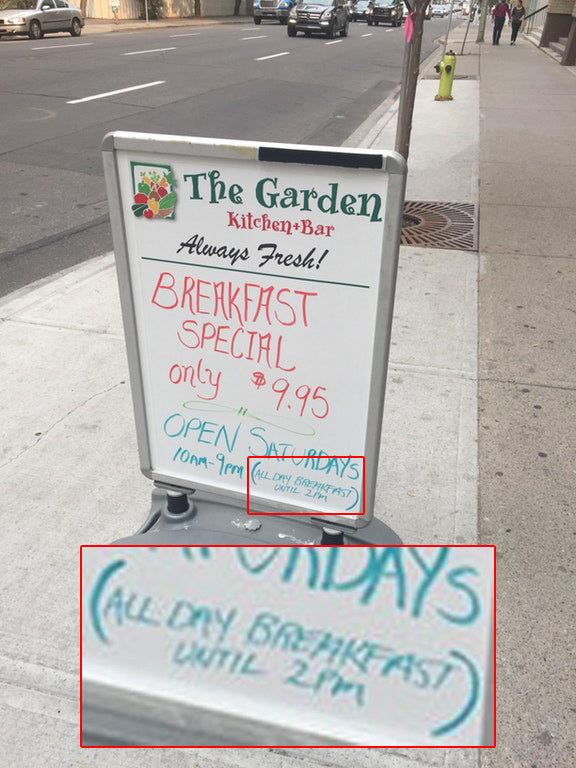 The Garden
Kitchen+Bar
Always Fresh!
BREAKFAST
SPECIAL
only $9.95
OPEN SATURDAYS
10AM-9pm (ALL DAY BREAKFAST
UNTIL 2PM)
URDAYS
(ALL DAY BREAKFAST)
UNTIL 2PM